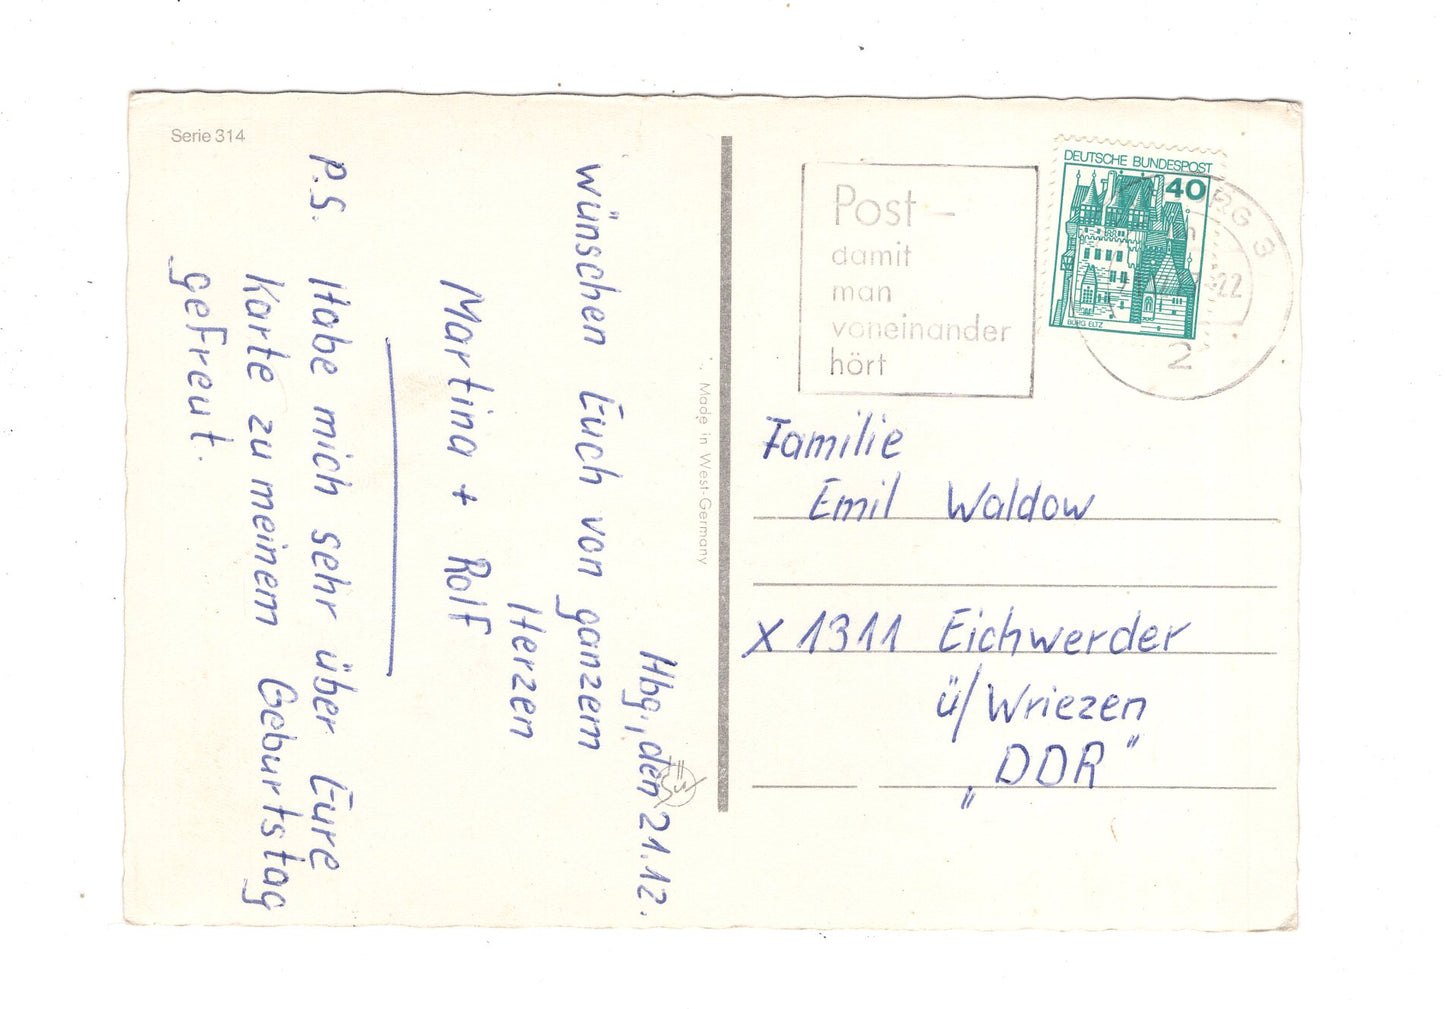 Serie 314
Hbg., den 21.12.
wünschen Euch von ganzem
Herzen
Martina + Rolf
P.S. Habe mich sehr über Eure
Karte zu meinem Geburtstag
gefreut.
Made in West-Germany
Post –
damit
man
voneinander
hört
DEUTSCHE BUNDESPOST
40
BURG ELTZ
RG 3
22
2
Familie
Emil Waldow
X 1311 Eichwerder
ü/Wriezen
„DDR"